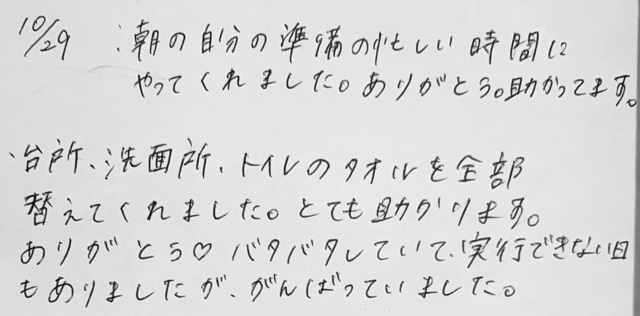 10/29 :朝の自分の準備の忙しい時間に
やってくれました。ありがとう。助かってます。
・台所、洗面所、トイレのタオルを全部
替えてくれました。とても助かります。
ありがとう♡ バタバタしていて、実行できない日
もありましたが、がんばっていました。